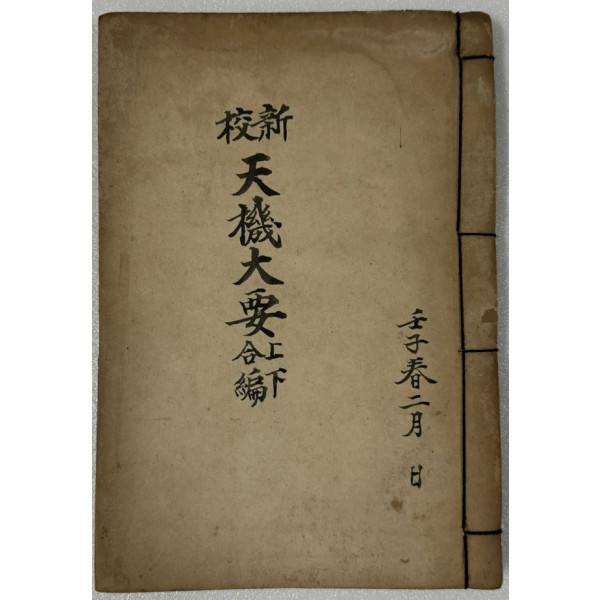 壬子春二月 日
新校
天機大要
上下
合編